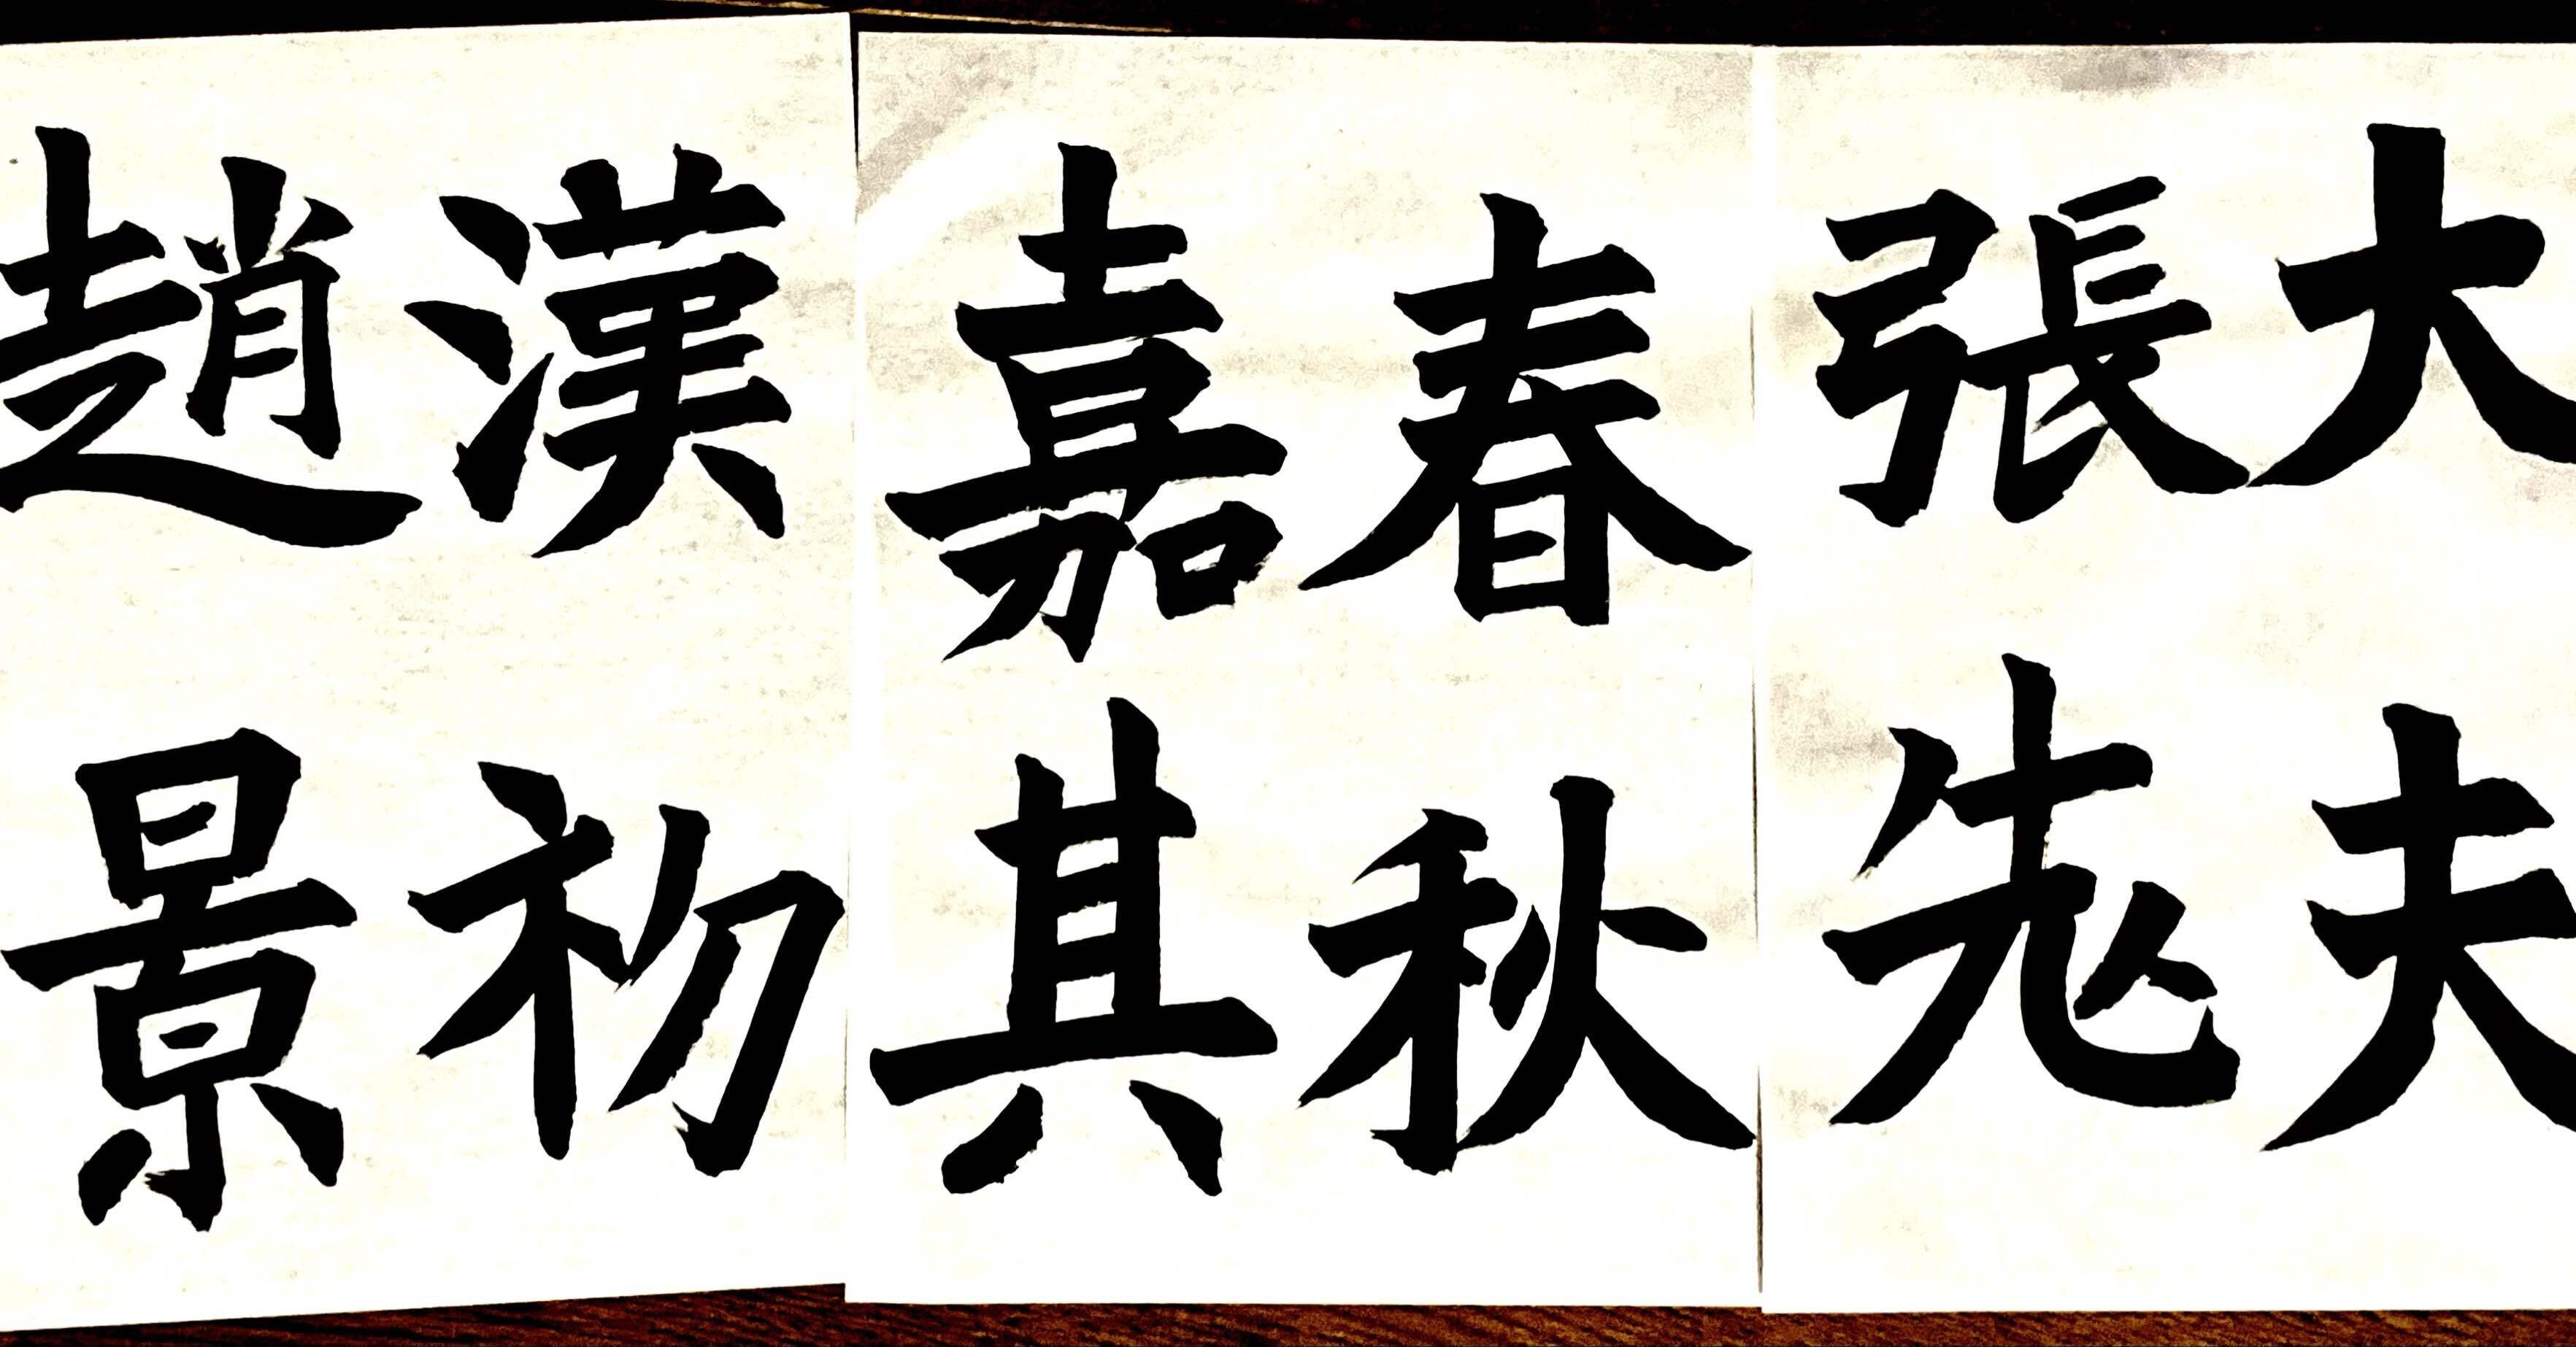 大夫
張先
春秋
嘉其
漢初
趙景